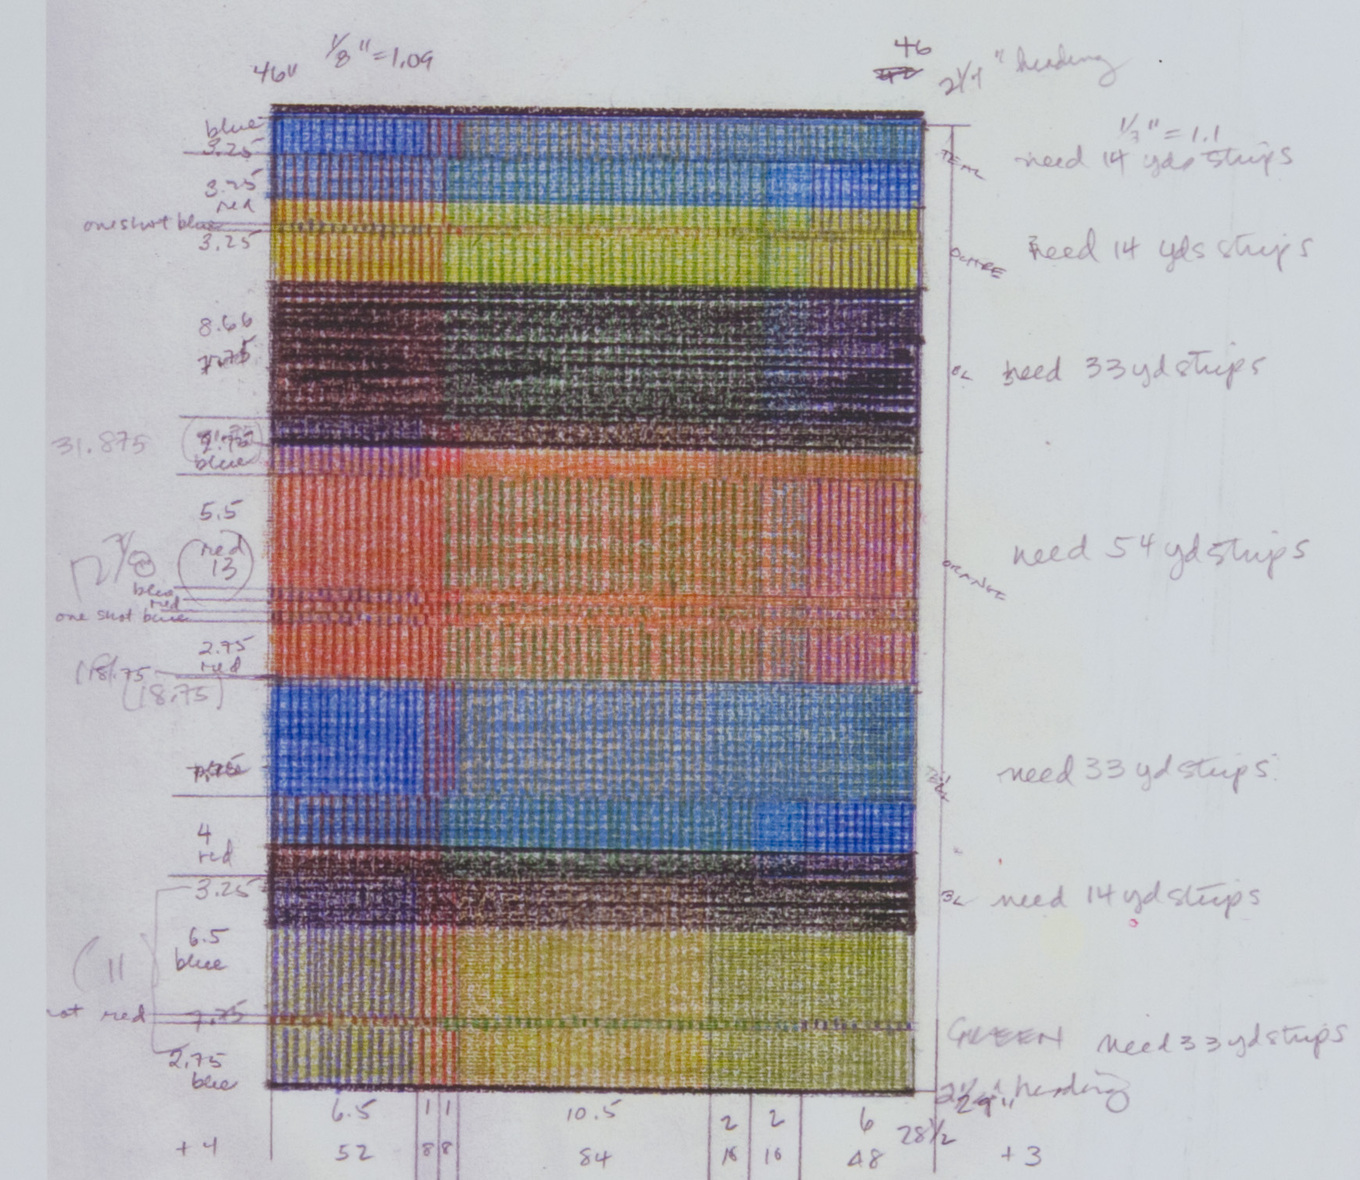 46" 1/8" = 1.09
46
2 1/4" heading
blue
3.25
1/3" = 1.1
TEAL need 14 yds strips
3.25
red
one shot blue
3.25
OCHRE need 14 yds strips
8.66
BL need 33 yd strips
31.875
2.75
blue
5.5
red
13
12 7/8
need 54 yd strips
ORANGE
blue
red
one shot blue
2.75
red
18.75
(18.75)
7.75
TEAL need 33 yd strips
4
red
3.25
BL need 14 yd strips
6.5
blue
(11)
shot red 7.75
GREEN need 33 yd strips
2.75
blue
heading
6.5 1 1 10.5 2 2 6 28 1/2
+4 52 8 8 84 16 16 48 +3